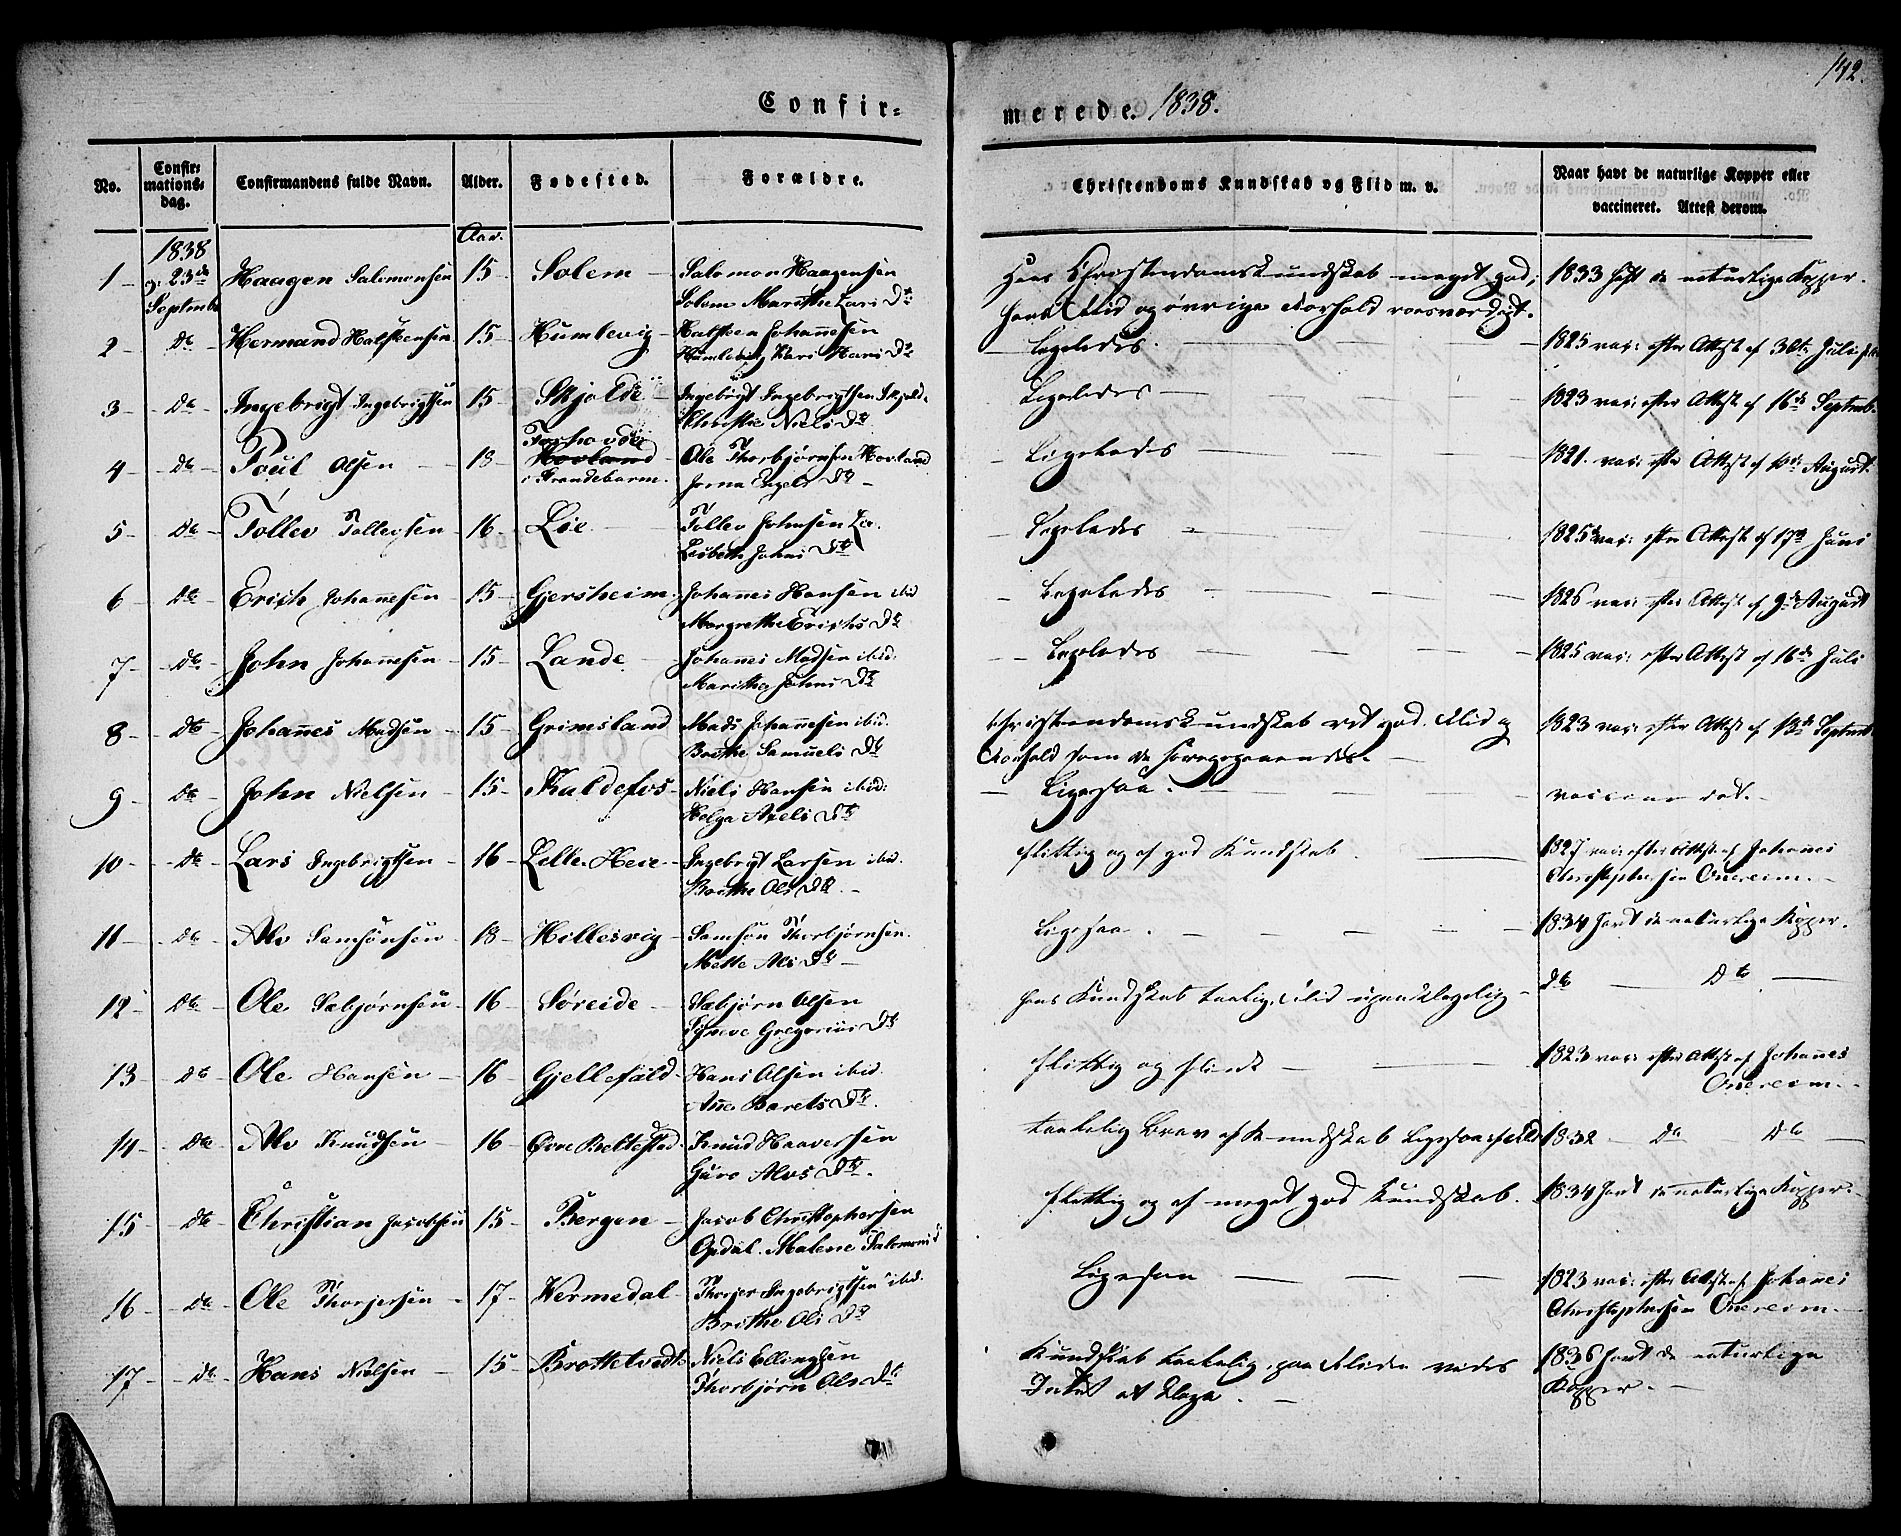 142.
Confir=
merede. 1838.
No.
Confir=
mations=
dag.
Confirmandens fulde Navn.
Alder.
Fødested.
Forældre.
Christendoms Kundskab og Flid m. v.
Naar havt de naturlige Kopper eller
vaccineret. Attest derom.
1838
23de
Septembr
Aar.
1 Haagen Salomonsen 15 Solem Salomon Haagensen
Solem Marithe Lars Dtr
Hans Christendomskundskab meget god;
hans Flid og øvrige Forhold roesværdigt.
1833 haft de naturlige Kopper.
2 Do Hermand Halsteensen 15 Humlevig Halsteen Johannesen
Humlevig Kari Hans Dr
Ligeledes.
1825 vac: efter Attest af 30te Juli
3 Do Ingebrigt Ingebrigtsen 15 Skjolde Ingebrigt Ingebrigtsen Skjold
Christhe Niels Dr
Ligeledes
1823 vac: efter Attest af 16de Septemb.
4 Do Poul Olsen 18
Hovland
i Strandebarm.
Ole Thorbjørnsen Hovland
Engels Dr
Ligeledes
1821 vac: efter Attest af August.
5 Do Tollev Tollevsen 16 Løe Tollev Johnsen
Lisbeth Johns Dtr
Ligeledes
1825 vac: efter Attest af 17de Juni
6 Do Erich Johannesen 15 Gjersheim Johannes Hansen ibid
Margrethe Erichs Dtr
Ligeledes
1826 vac: efter Attest af 9de August
7 Do John Johannesen 15 Lande Johannes Madsen ibid.
Maritha Johns Dtr
Ligeledes
1825 vac: efter Attest af 16de Juli
8 Do Johannes Madsen 15 Grimsland Mads Johannesen ibid.
Brithe Samuels Dr
Christendomskundskab ret god. Flid og
Forhold som de foregaaendes.
1823 vac: efter Attest af 13de Septemb
9 Do John Nielsen 15 Kaldefos Niels Hansen ibid:
Helga Axels Dtr
Ligesaa.
vaccineret.
10 Do Lars Ingebrigtsen 16 Lille Heie Ingebrigt Larsen ibid.
Brithe Ols Dtr.
flittig og af god Kundskab.
1827 vac: efter Attest af Johanes
Christophersen Onereim.
11 Do Alv Samsonsen 18 Hillesvig Samson Thorbjørnsen.
Mette Als Dtr
Ligesaa.
1834 havt de naturlige Kopper.
12 Do Ole Sæbjørnsen 16 Søreide Sæbjørn Olsen
Gregorius Dtr
hans Kundskab taalelig, Flid upaaklagelig
Do Do
13 Do Ole Hansen 16 Gjellefald Hans Olsen ibid.
Ane Barets Dtr.
flittig og
1823 vac: efter Attest af Johannes
Onereim.
14 Do Alv Knudsen 16 Øvre Beltestad. Knud Haaversen
Guro Alvs Dtr.
taalelig Brav af Kundskab ligesaa flid
1832 Do Do
15 Do Christian Jacobsen 15 Bergen Jacob Christophersen
Opdal. Malene Salomons d
flittig og af meget god Kundskab.
1834 havt de naturlige Kopper.
16 Do Ole Thorjersen 17 Wermedal Thorjer Ingebrigtsen ibid.
Brithe Ols Dtr
Ligesaa
1823 vac: efter Attest af Johanes
Christophersen Onereim.
17 Do Hans Nielsen 15 Brottetvedt Niels Ellingsen
Thorbjørn Ols Dtr
Kundskab taalelig, paa Fliden vides
Intet at klage.
1836 havt de naturlige
Kopper.